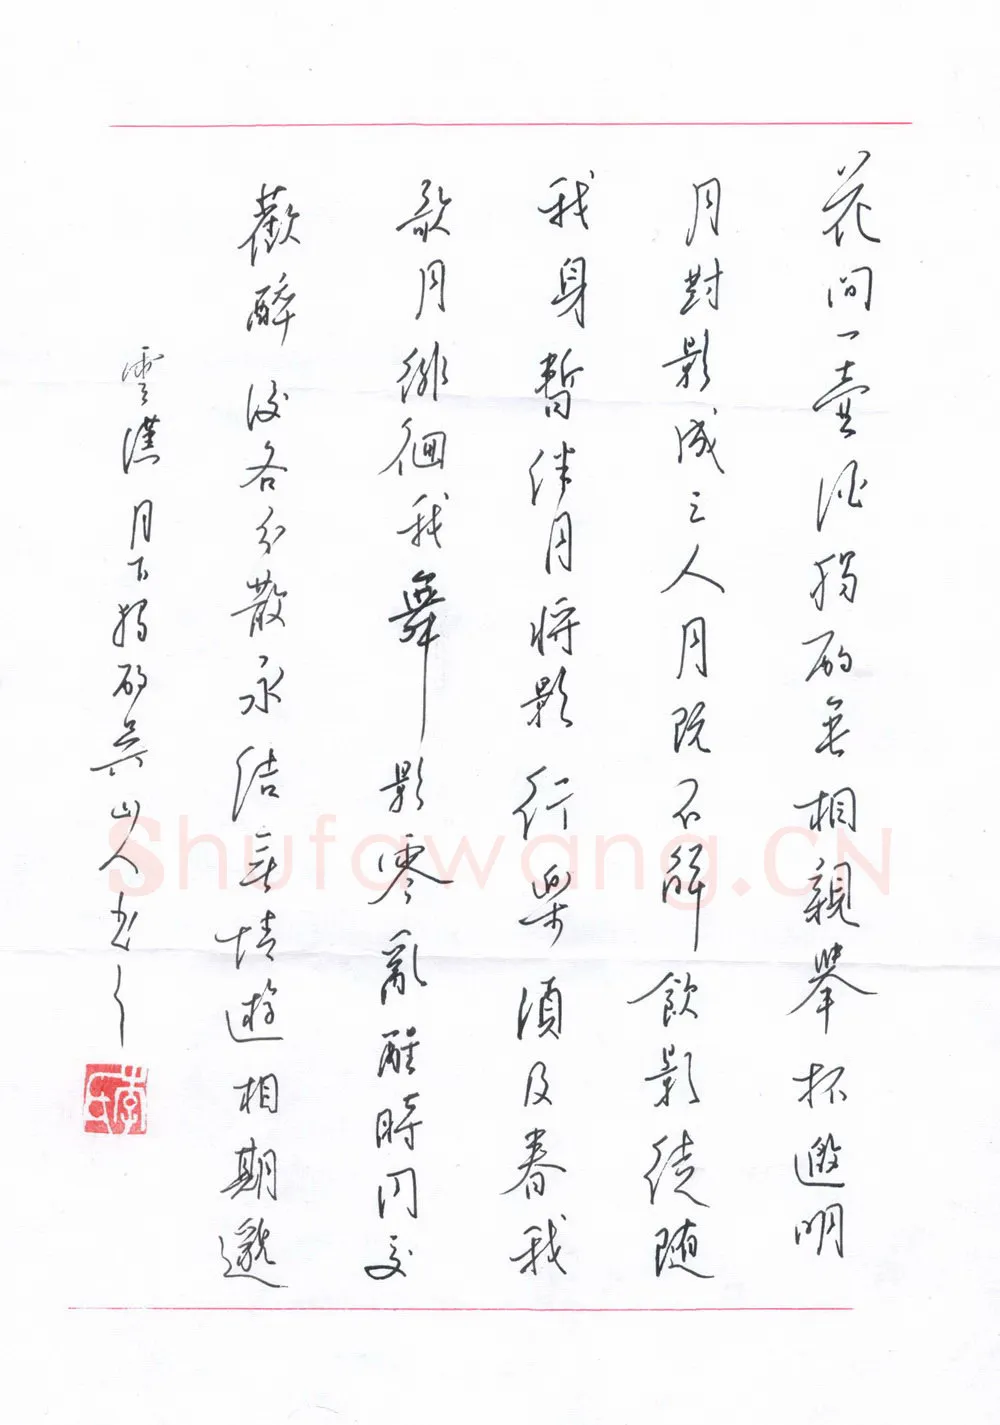 花间一壶酒独酌無相親舉杯邀明
月對影成三人月既不解飲影徒随
我身暫伴月将影行樂須及春我
歌月徘徊我舞影零亂醒時同交
歡醉後各分散永结無情遊相期邈
雲漢月下獨酌吴山人书
李氏
Shufawang.CN